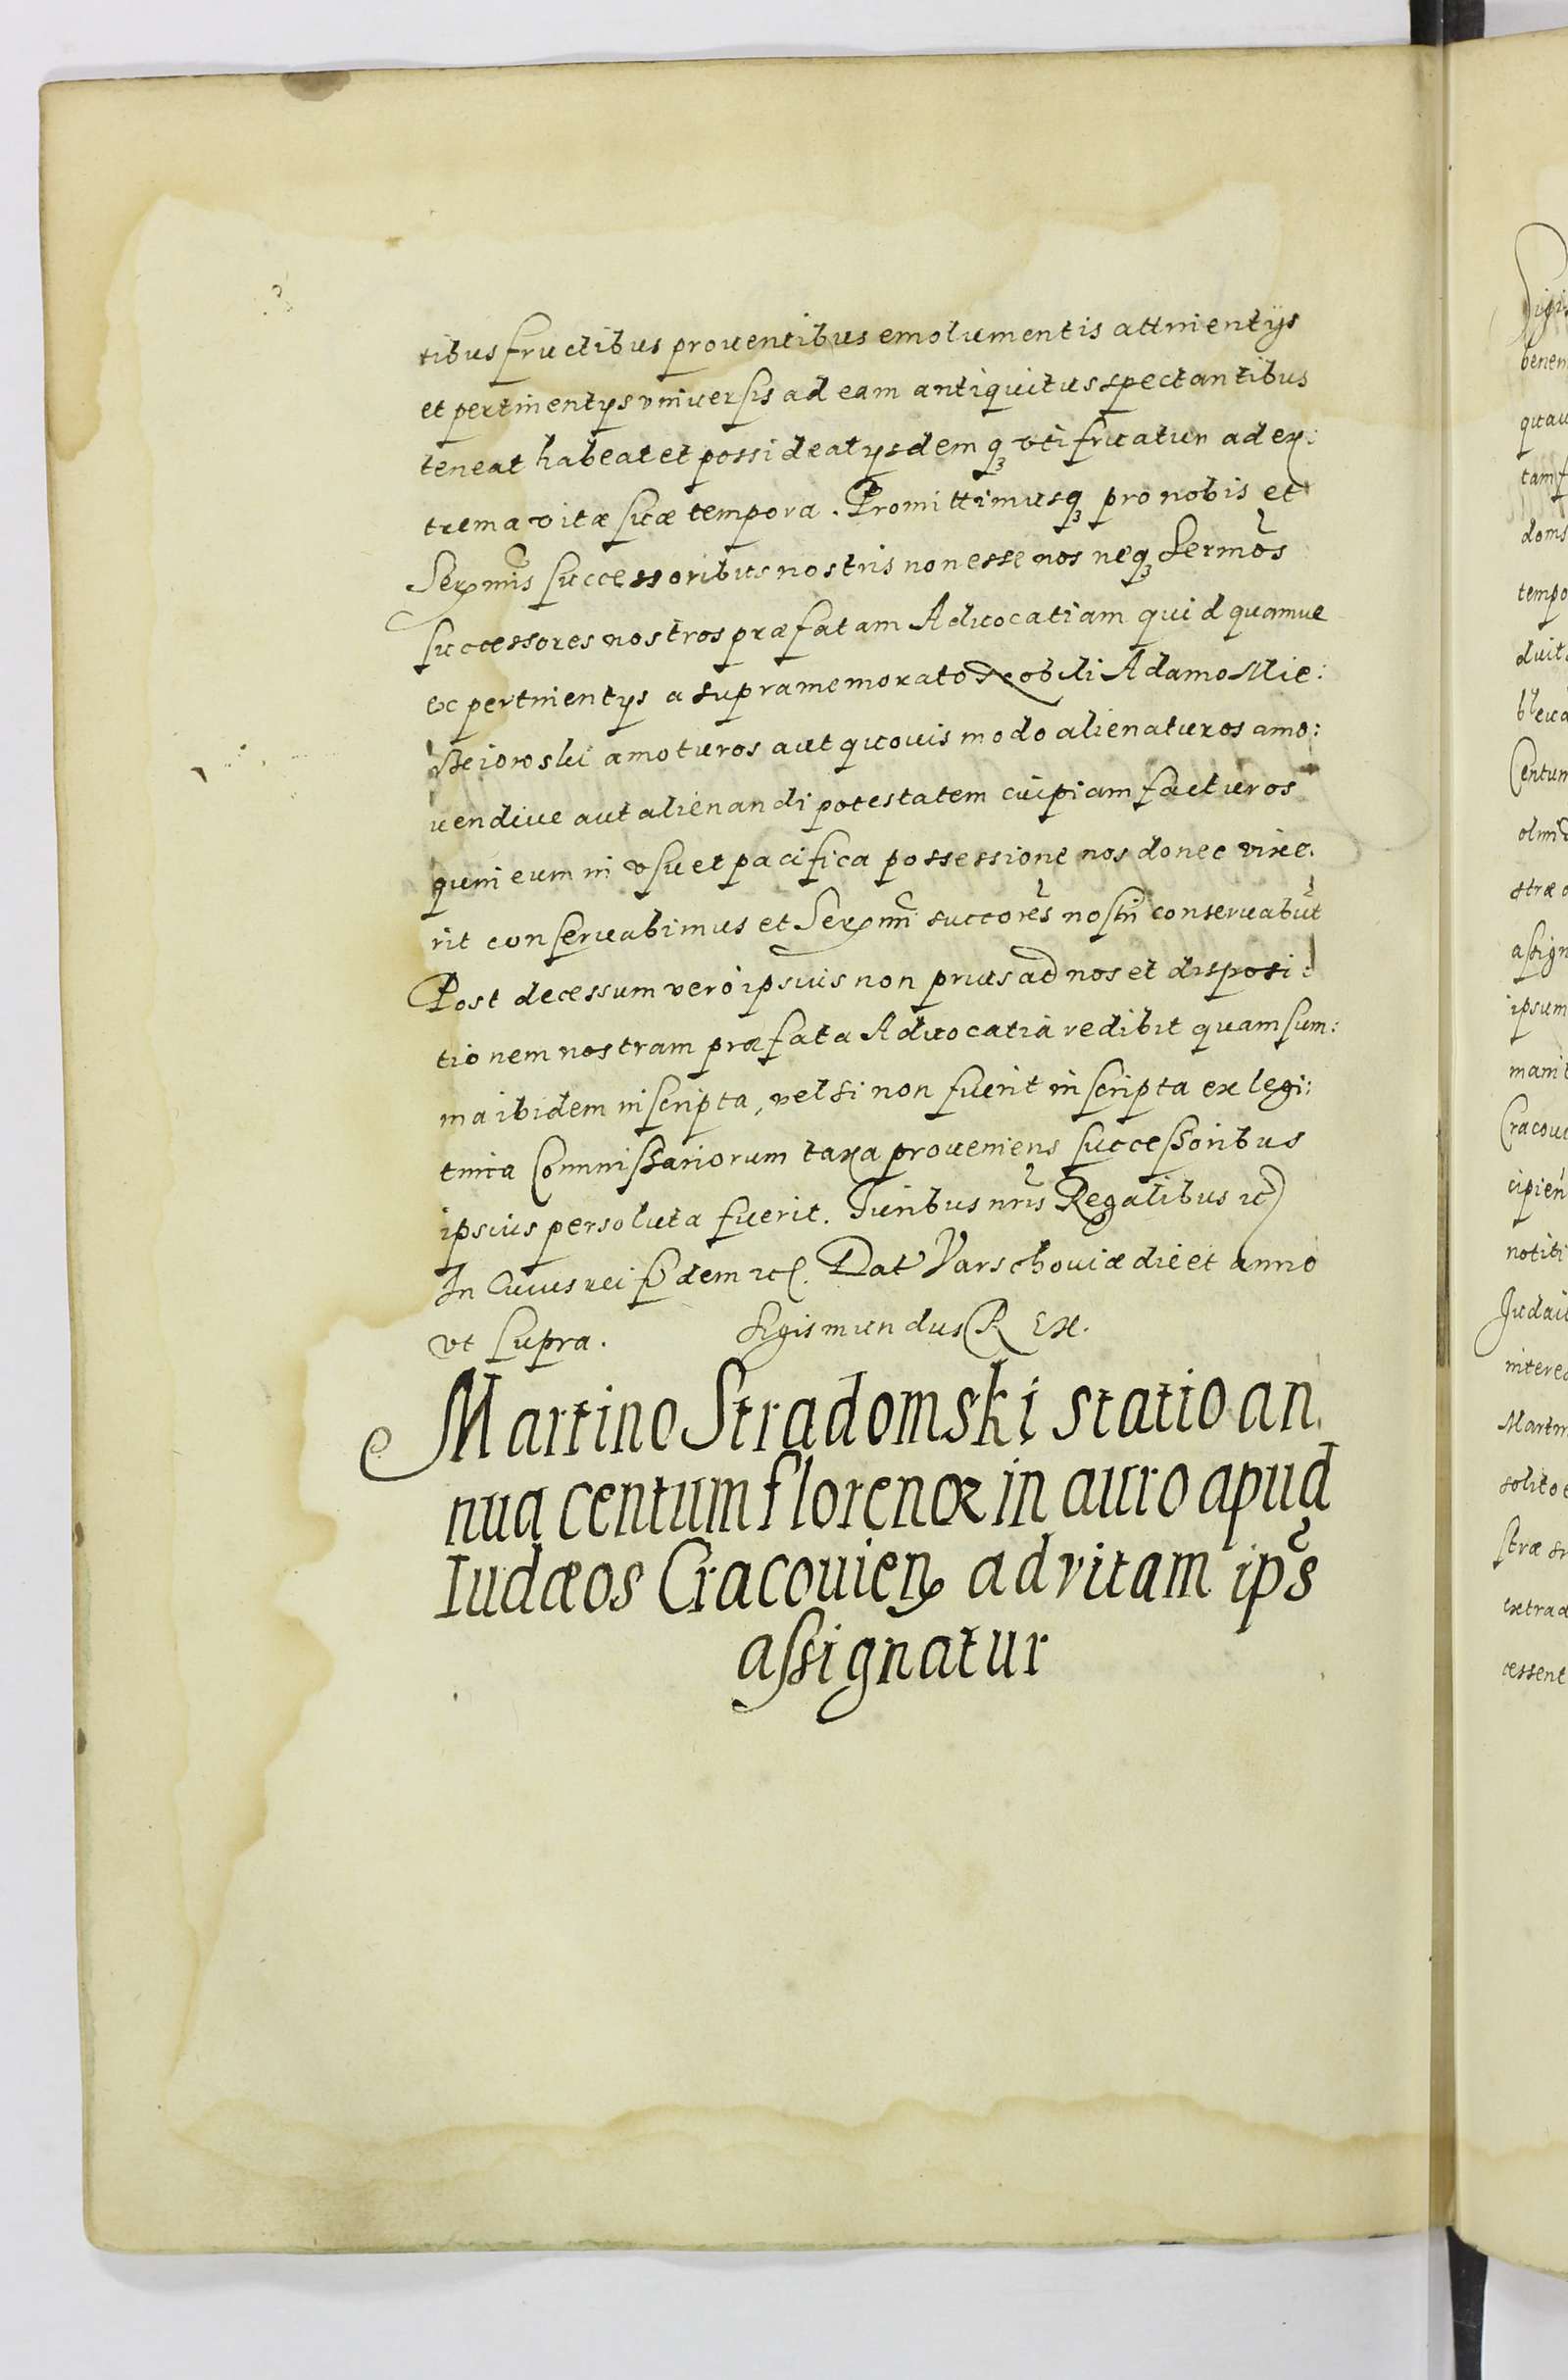 tibus fructibus prouentibus emolumentis attinentÿs
et pertinentÿs vniuersis ad eam antiquitus spectantibus
teneat habeat et possideat ÿsdemqꝫ vti fruatur ad ex:
trema vitæ suæ tempora. Promittimusqꝫ pro nobis et
Sermis successoribus nostris non esse nos neqꝫ Sermos
successores nostros præfatam Aduocatiam quidquamue
ex pertinentÿs a supramemorato Nobili Adamo Mie:
amoturos aut quouis modo alienaturos amo:
uendiue aut alienandi potestatem cuipiam facturos
quin eum in vsu et pacifica possessione nos donec vixe.
rit conseruabimus et Sermi succores nostri conseruabut
Post decessum vero ipsius non prius ad nos et disposi:
tionem nostram præfata Aduocatia redibit quam sum:
ma ibidem inscripta, vel si non fuerit inscripta ex legi:
tima Commissariorum taxa proueniens successoribus
ipsius persoluta fuerit. Iuribus nris Regalibus etc
In Cuius rei fidem etc. Dat Varschouiæ die et anno
vt supra. Sigismundus Rex.
Martino Stradomski statio an.
nua centum florenoꝝ in auro apud
Iudæos Cracouien ad vitam ips
assignatur
benem
tam f
doms
tempo
duit
Centum
stræ
assign
ipsum
Cracoui
cipien
notiti
Iudai
interea
Martin
solito
stræ
extrad
cessent